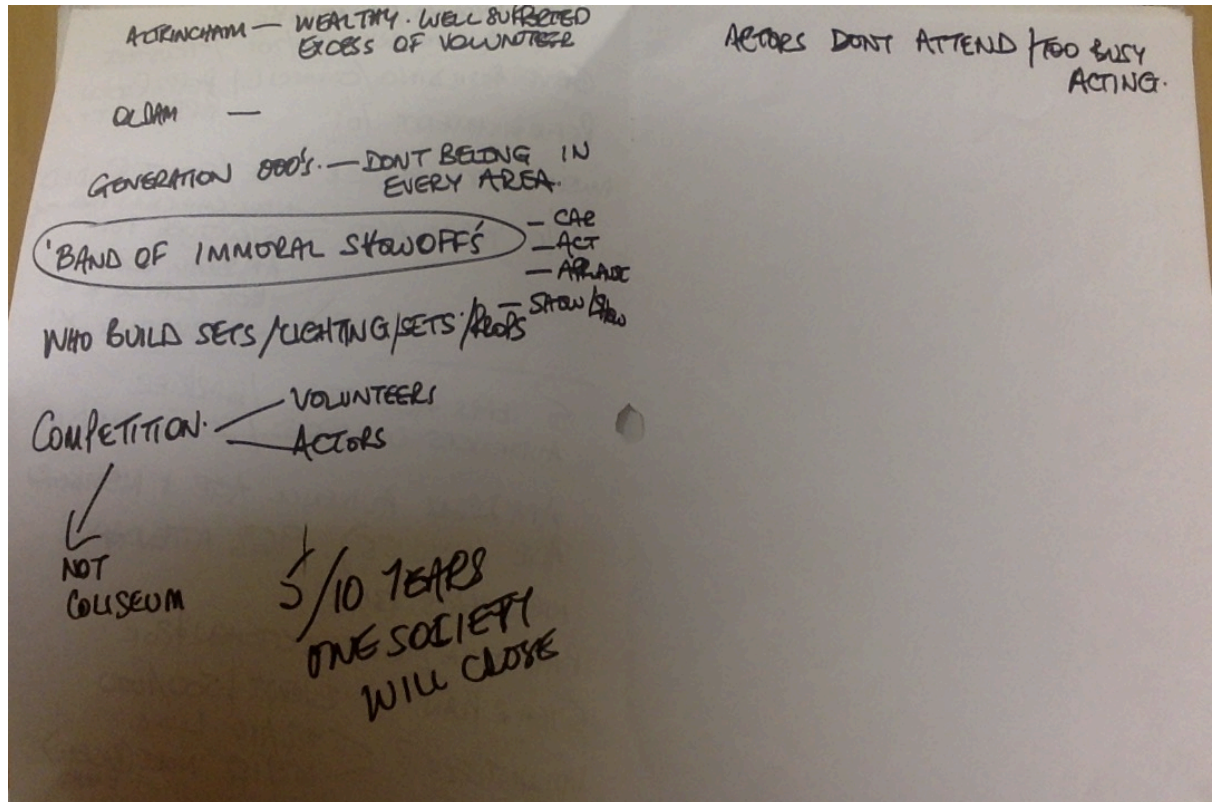 ALTRINCHAM — WEALTHY. WELL SUPPORTED
EXCESS OF VOLUNTEER
OLDAM —
GENERATION 000's. — DONT BELONG IN
EVERY AREA.
'BAND OF IMMORAL SHOWOFFS'
— CAR
— ACT
— APLAUSE
— SHOW/SHOW
WHO BUILD SETS/LIGHTING/SETS/PROPS
COMPETITION.
VOLUNTEERS
ACTORS
NOT
COLISEUM
5/10 YEARS
ONE SOCIETY
WILL CLOSE
ACTORS DONT ATTEND/TOO BUSY
ACTING.